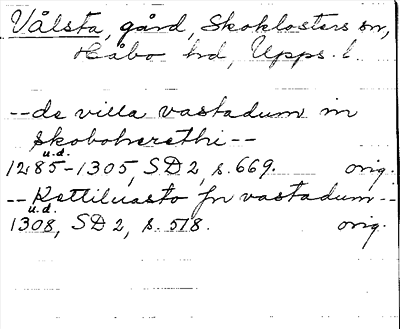 Vålsta, gård, Skoklosters sn,
Håbo hd, Upps. l.
--de villa vastadum in
skoboherethi--
u.d.
1285-1305, SD 2, s. 669. orig.
--Kettiluasto fn vastadum--
u.d.
1308, SD 2, s. 518. orig.